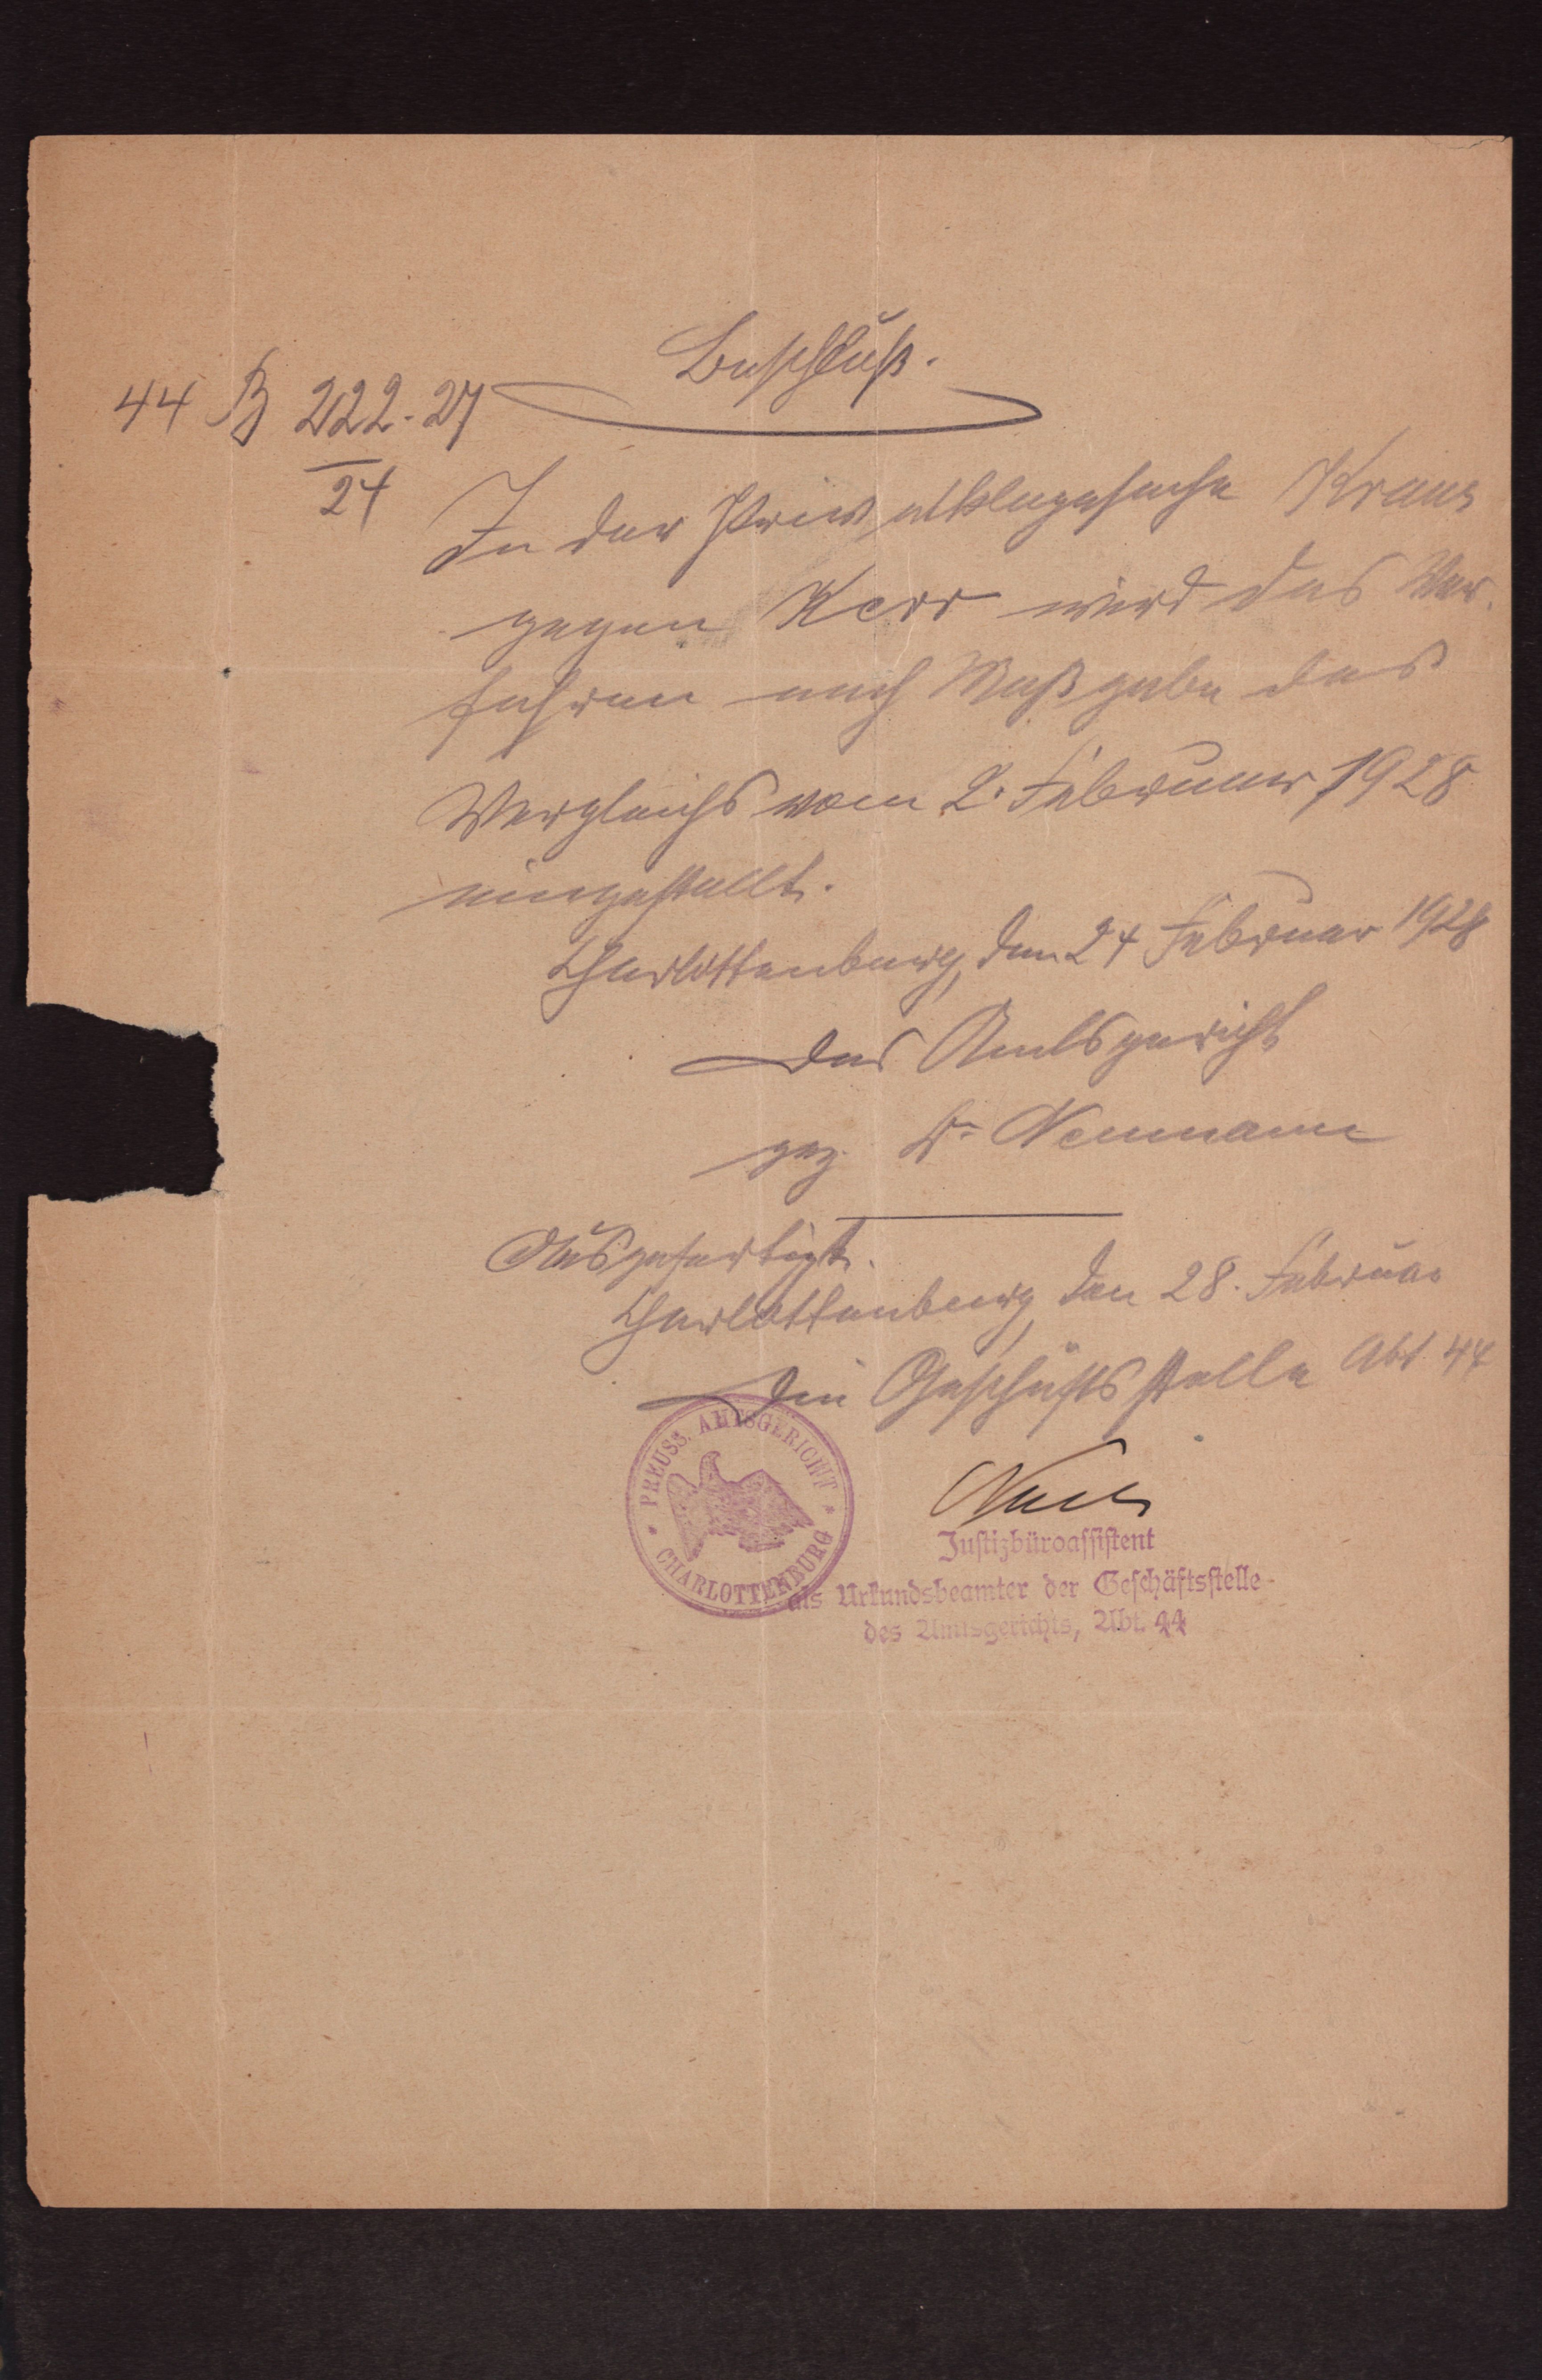 Beschluß.
44 B 222.27
24
In der Privatklagesache Kraus
gegen Kerr wird das Ver-
fahren nach Maßgabe des
Vergleichs vom 2. Februar 1928
eingestellt.
Charlottenburg, den 24 Februar 1928
Das Amtsgericht
gez. Dr. Neumann
Ausgefertigt.
Charlottenburg, den 28. Februar
Die Geschäftsstelle Abt 44
PREUSS. AMTSGERICHT
* CHARLOTTENBURG *
Justizbüroassistent
als Urkundsbeamter der Geschäftsstelle
des Amtsgerichts, Abt. 44